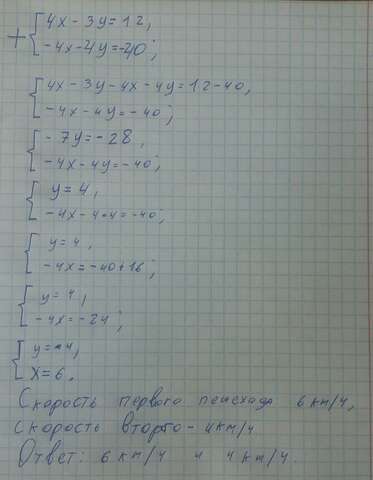 + { 4x - 3y = 12,
-4x - 4y = -40;
{ 4x - 3y - 4x - 4y = 12 - 40,
-4x - 4y = -40;
{ -7y = -28,
-4x - 4y = -40;
{ y = 4,
-4x - 4•4 = -40;
{ y = 4,
-4x = -40 + 16;
{ y = 4,
-4x = -24;
{ y = 4,
x = 6.
Скорость первого пешехода 6 км/ч,
скорость второго - 4 км/ч
Ответ: 6 км/ч и 4 км/ч.